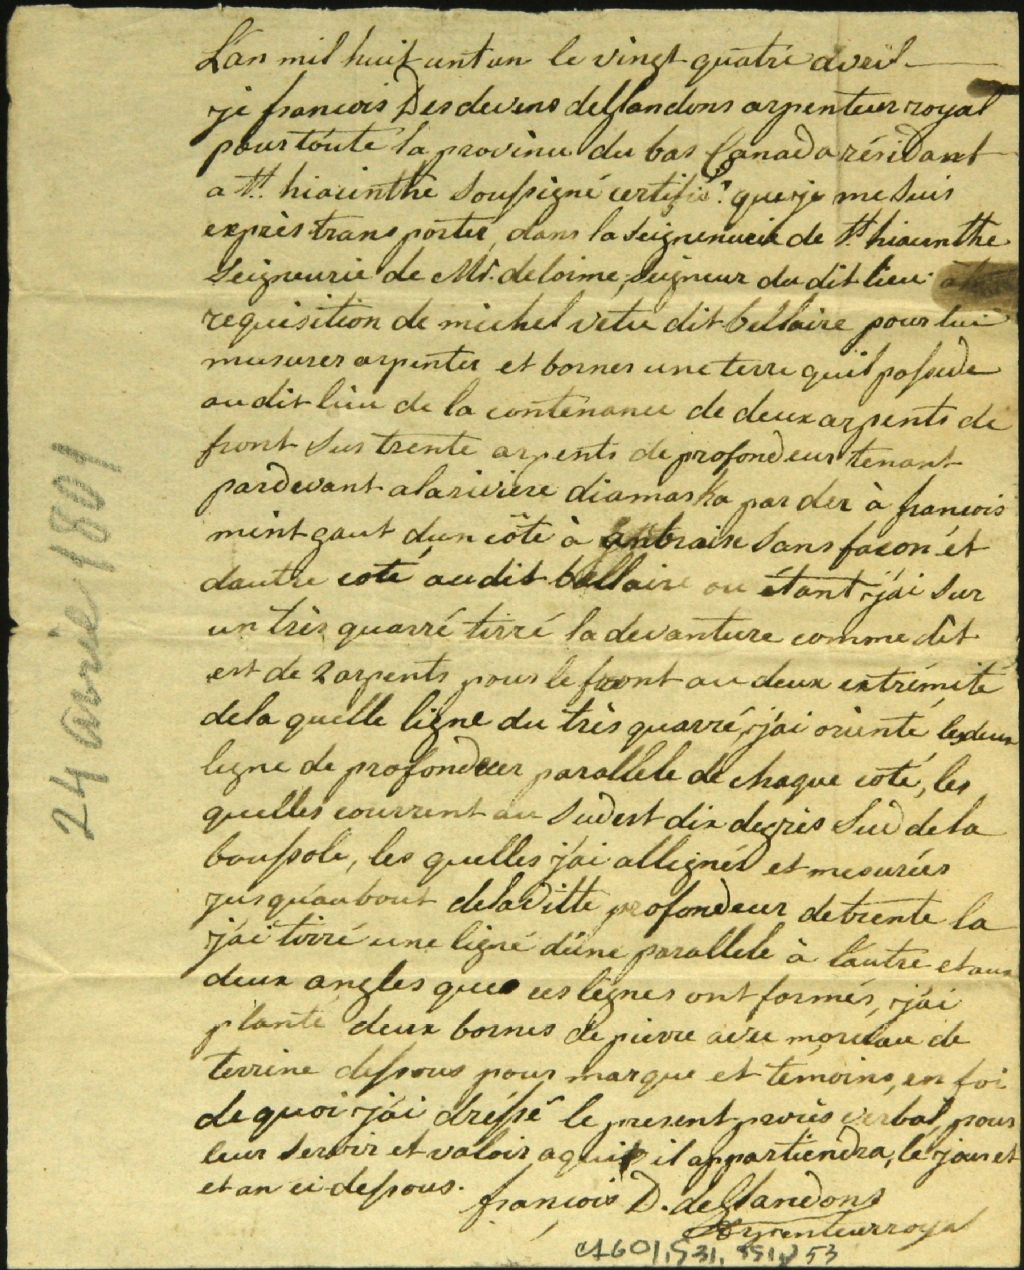 L'an mil huit cent un le vingt quatre avril
je francois Desdevens deglandons arpenteur royal
pour toute la province du bas Canada résidant
a St. hiacinthe soussigné certifie que je me suis
exprès transporter, dans la seigneurie de St. hiacinthe
Seigneurie de Mr. delorme, seigneur du dit lieu a la
requisition de michel vetu dit bellaire pour lui
mesurer arpenter et borner une terre qu'il possede
au dit lieu de la contenance de deux arpents de
front sur trente arpents de profondeur tenant
pardevant a la riviere diamaska par der à francois
mintgaut d'un côte à ambroise sans facon et
dautre coté au dit bellaire ou étant j'ai sur
un très quarré tirré la devanture comme dit
est de 2 arpents pour le front au deux extrémité
de la quelle ligne du très quarré, j'ai orienté les deux
ligne de profondeur parallele de chaque coté, les
quelles courrent au sudest dix degrés sud de la
boussole, les quelles j'ai allignés et mesurées
jusqu'au bout de la ditte profondeur de trente la
j'ai tirré une ligne d'une parallele à l'autre et aux
deux angles que ces lignes ont formés, j'ai
planté deux bornes de pierre avec morceau de
terrine dessous pour marque et témoins, en foi
de quoi j'ai dréssé le present procès verbal pour
leur servir et valoir a qui il appartiendra, le jour et
et an ci dessous.
françois D. deglandons
Arpenteur royal
24 avril 1801
CA601,S31,SS1,D53